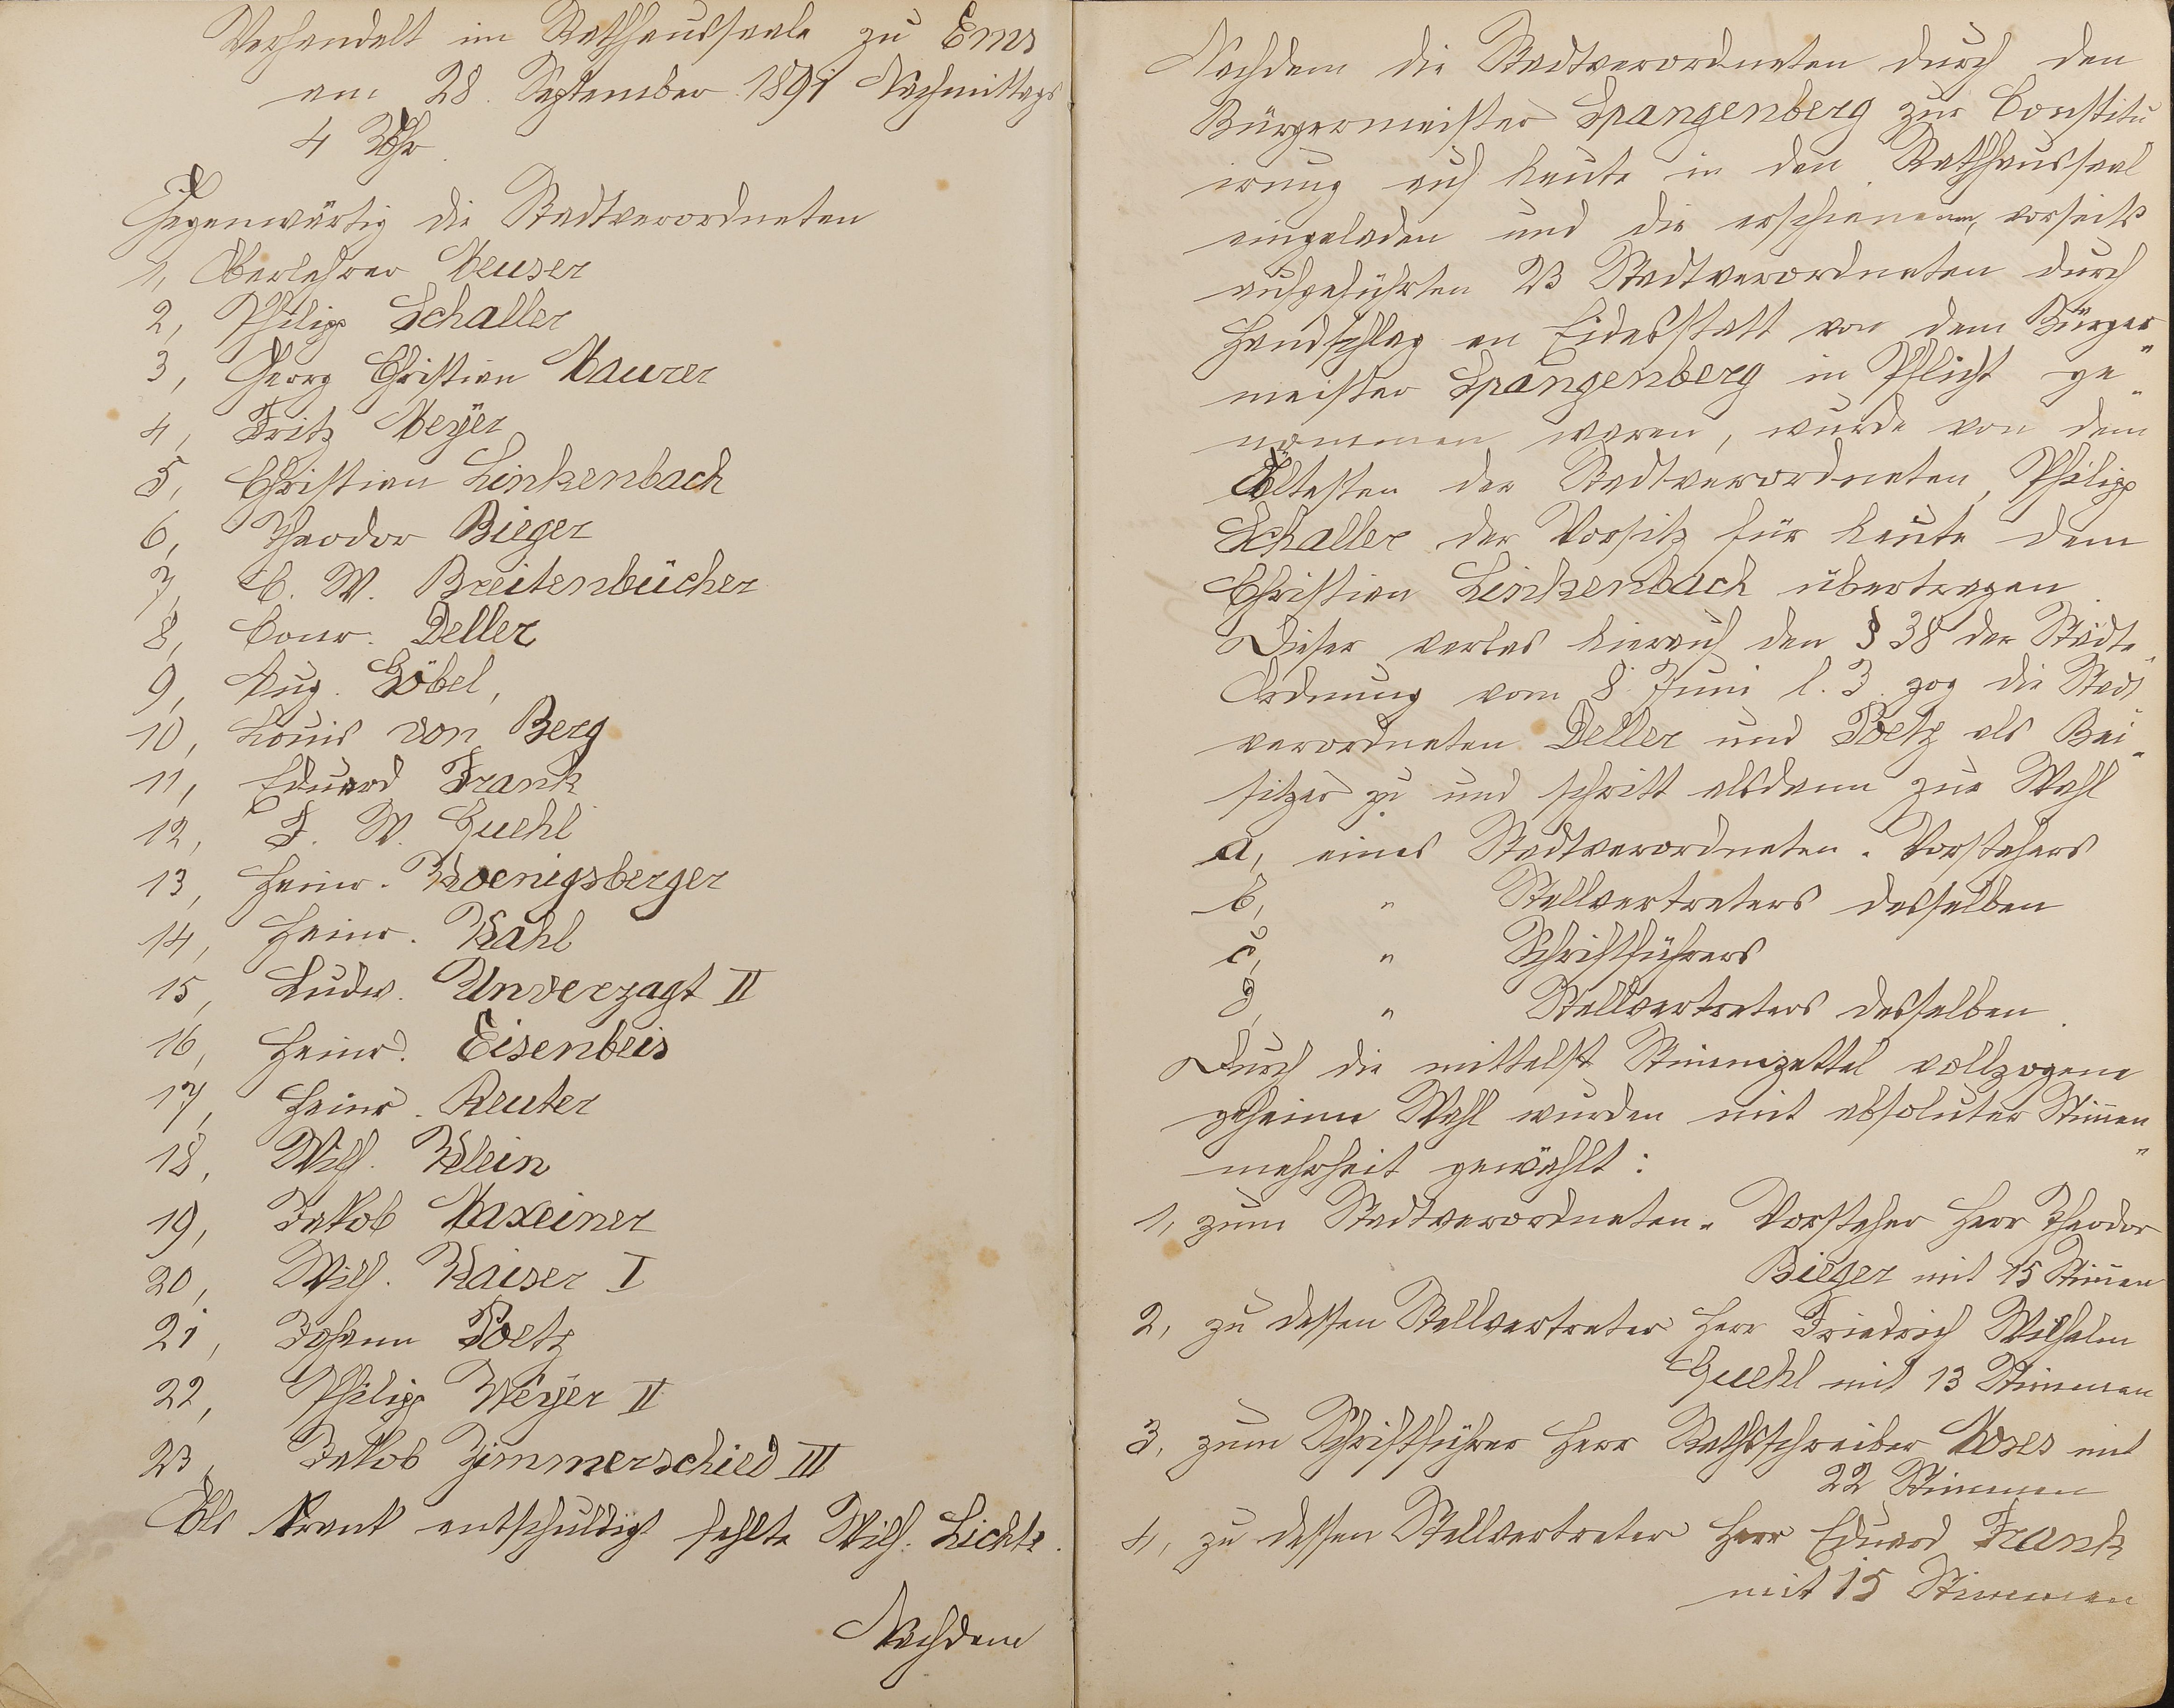 Verhandelt im Rathhaussaale zu Ems
am 28. September 1891 Nachmittags
4 Uhr.
Gegenwärtig die Stadtverordneten
1, Oberlehrer Meuser
2, Philipp Schaller
3, Georg Christian Maurer
4, Fritz Meÿer
5, Christian Linkenbach
6, Theodor Bieger
7, C. W. Breitenbücher
8, Conr. Deller
9, Aug. Göbel,
10, Louis von Berg
11, Eduard Frank
12, F. W. Guehl
13, Heinr. Koenigsberger
14, Heinr. Kahl
15, Ludw. Unverzagt II
16, Heinr. Eisenbeis
17, Heinr. Reuter
18, Wilh. Klein
19, Jakob Maxeiner
20, Wilh. Kaiser I
21, Johann Poetz
22, Philipp Weyer II
23, Jakob Zimmerschied III
Als krank entschuldigt fehlte Wilh. Lichte.
Nachdem
Nachdem die Stadtverordneten durch den
Bürgermeister Spangenberg zur Constitu
irung auf heute in den Rathhaussaal
eingeladen und die erschienenen, vorseits
aufgeführten 23 Stadtverordneten durch
Handschlag an Eidesstatt von dem Bürger„
meister Spangenberg in Pflicht ge„
nommen waren, wurde von dem
Ältesten der Stadtverordneten, Philipp
Schaller der Vorsitz für heute dem
Christian Linkenbach übertragen.
Dieser verlas hierauf den § 38 der Städte„
Ordnung vom 8. Juni l. J. zog die Stadt„
verordneten Deller und Poetz als Bei„
sitzer zu und schritt alsdann zur Wahl
a, eines Stadtverordneten-Vorstehers
b, " Stellvertreters desselben
c, " Schriftführers
d, " Stellvertreters desselben.
Durch die mittelst Stimmzettel vollzogene
geheime Wahl wurden mit absoluter Stim̄en„
mehrheit gewählt:
1, zum Stadtverordneten-Vorsteher Herr Theodor
Bieger mit 15 Stim̄en
2, zu dessen Stellvertreter Herr Friedrich Wilhelm
Guehl mit 13 Stimmen
3, zum Schriftführer Herr Rathsschreiber Moses mit
22 Stimmen
4, zu dessen Stellvertreter Herr Eduard Frank
mit 15 Stimmen